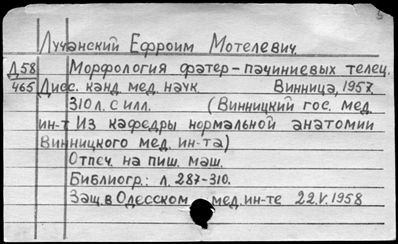 Лучанский Ефроим Мотелевич.
Д58 Морфология фатер-пачиниевых телец.
465 Дисс. канд. мед. наук. Винница, 1957
310 л. с илл. (Винницкий гос. мед.
ин-т Из кафедры нормальной анатомии
Винницкого мед. ин-та)
Отпеч. на пиш. маш.
Библиогр.: л. 287-310.
Защ. в Одесском мед. ин-те 22.V.1958